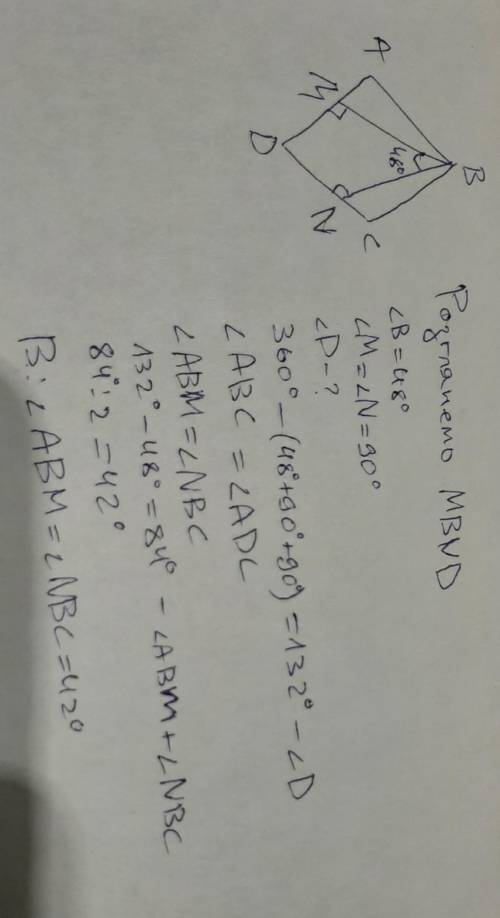 A
B
M
48°
D
N
C
Розглянемо MBND
∠B=48°
∠M=∠N=90°
∠D-?
360°-(48°+90°+90°)=132° - ∠D
∠ABC = ∠ADC
∠ABM=∠NBC
132°-48°=84° - ∠ABM+∠NBC
84°:2=42°
В: ∠ABM=∠NBC=42°